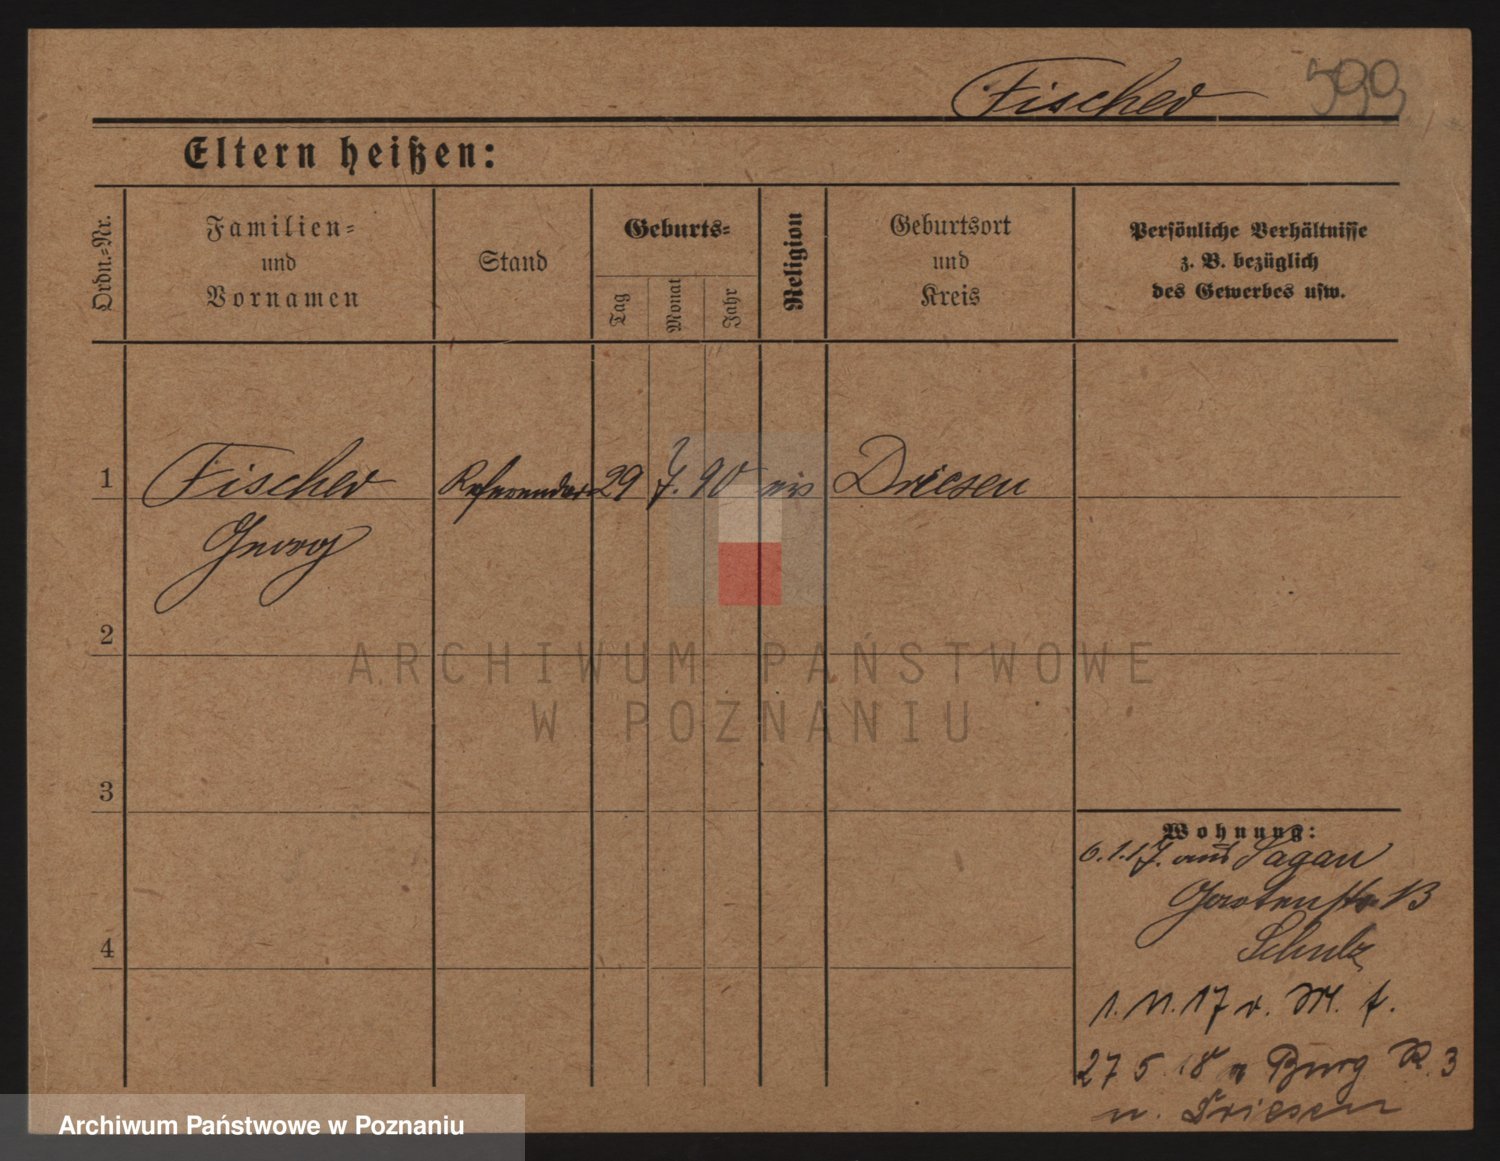 Fischer 599
Eltern heißen:
Ordn.=Nr.
Familien=
und
Vornamen
Stand
Geburts=
Tag
Monat
Jahr
Religion
Geburtsort
und
Kreis
Persönliche Verhältnisse
z. B. bezüglich
des Gewerbes usw.
1 Fischer Referendar 29 7. 90 Driesen
Georg
2
3
4
Wohnung:
6.1.17. aus Sagan
Gartenstr. 13
Schulz
1. 11. 17 v. M. f.
27 5. 18 n Burg R. 3
n. Driesen
ARCHIWUM PAŃSTWOWE
W POZNANIU
Archiwum Państwowe w Poznaniu